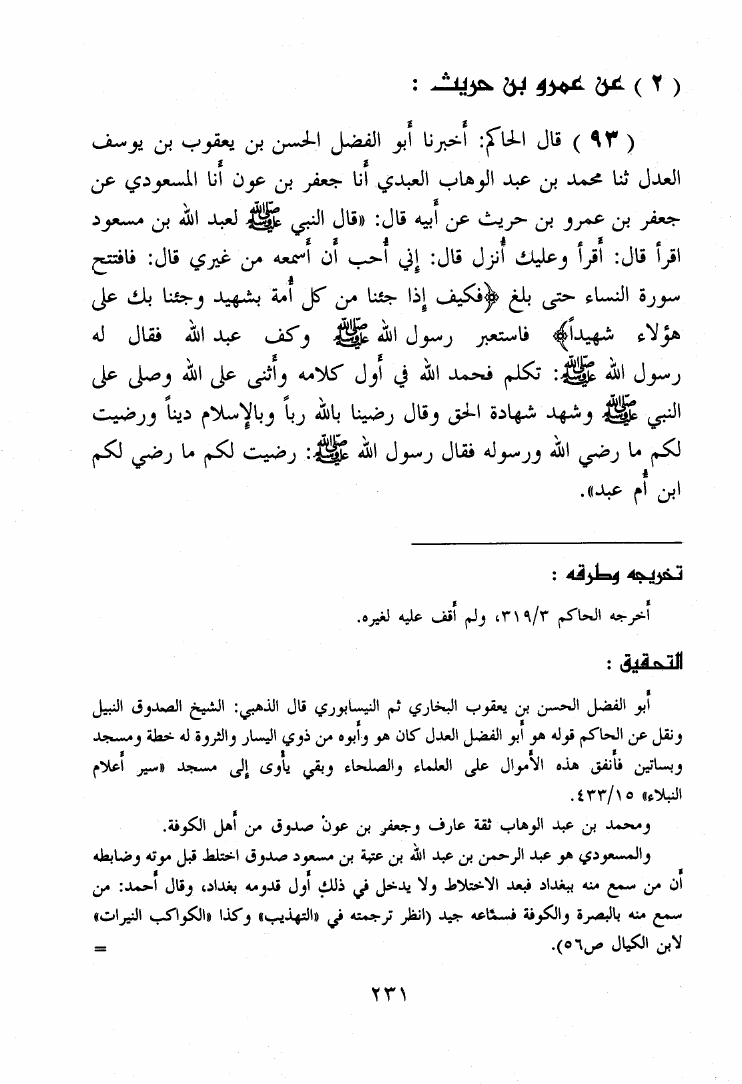 ( ٢ ) عن عمرو بن حريث :
( ٩٣ ) قال الحاكم: أخبرنا أبو الفضل الحسن بن يعقوب بن يوسف
العدل ثنا محمد بن عبد الوهاب العبدي أنا جعفر بن عون أنا المسعودي عن
جعفر بن عمرو بن حريث عن أبيه قال: «قال النبي ﷺ لعبد الله بن مسعود
اقرأ قال: أقرأ وعليك أُنزل قال: إني أُحب أن أسمعه من غيري قال: فافتتح
سورة النساء حتى بلغ ﴿فكيف إذا جئنا من كل أُمة بشهيد وجئنا بك على
هؤلاء شهيداً﴾ فاستعبر رسول الله ﷺ وكف عبد الله فقال له
رسول الله ﷺ: تكلم فحمد الله في أول كلامه وأثنى على الله وصلى على
النبي ﷺ وشهد شهادة الحق وقال رضينا بالله رباً وبالإسلام ديناً ورضيت
لكم ما رضي الله ورسوله فقال رسول الله ﷺ: رضيت لكم ما رضي لكم
ابن أُم عبد».
تخريجه وطرقه :
أخرجه الحاكم ٣١٩/٣، ولم أقف عليه لغيره.
التحقيق :
أبو الفضل الحسن بن يعقوب البخاري ثم النيسابوري قال الذهبي: الشيخ الصدوق النبيل
ونقل عن الحاكم قوله هو أبو الفضل العدل كان هو وأبوه من ذوي اليسار والثروة له خطة ومسجد
وبساتين فأنفق هذه الأموال على العلماء والصلحاء وبقي يأوى إلى مسجد «سير أعلام
النبلاء» ٤٣٣/١٥.
ومحمد بن عبد الوهاب ثقة عارف وجعفر بن عون صدوق من أهل الكوفة.
والمسعودي هو عبد الرحمن بن عبد الله بن عتبة بن مسعود صدوق اختلط قبل موته وضابطه
أن من سمع منه ببغداد فبعد الاختلاط ولا يدخل في ذلك أول قدومه بغداد، وقال أحمد: من
سمع منه بالبصرة والكوفة فسماعه جيد (انظر ترجمته في «التهذيب» وكذا «الكواكب النيرات»
لابن الكيال ص٥٦). =
٢٣١